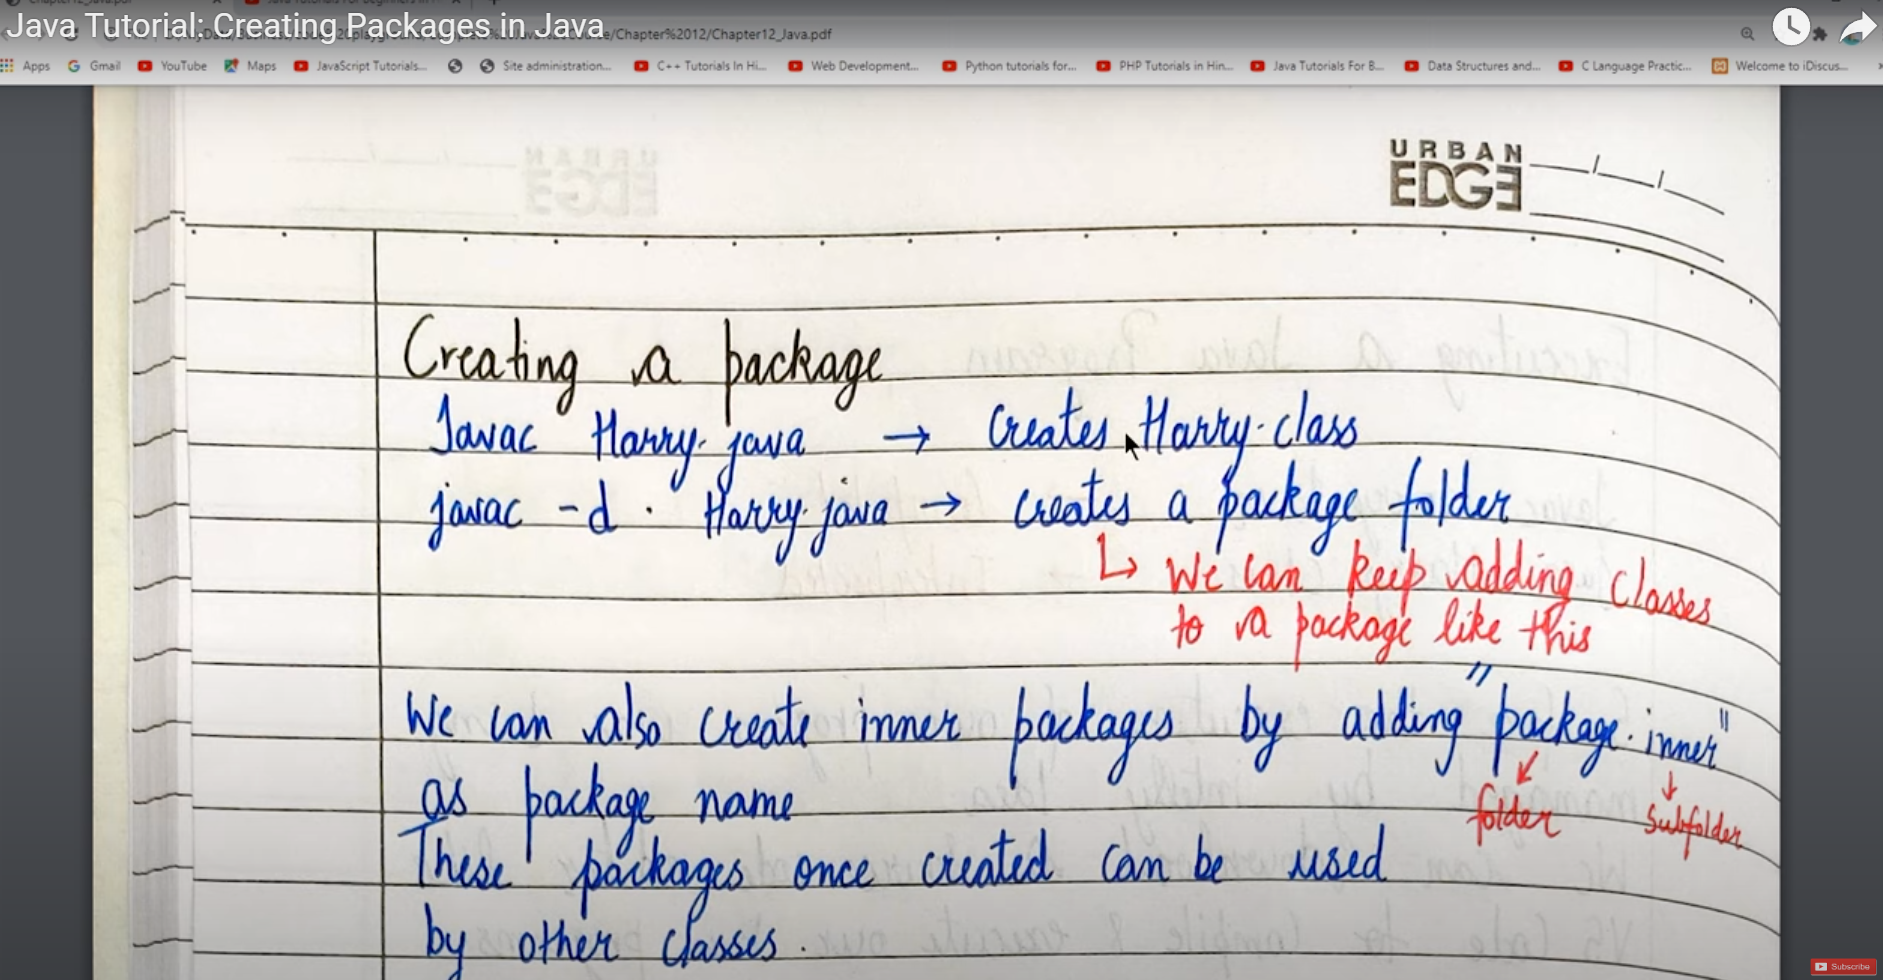 Java Tutorial: Creating Packages in Java
/Chapter%2012/Chapter12_Java.pdf
Apps Gmail YouTube Maps JavaScript Tutorials... Site administration... C++ Tutorials In Hi... Web Development... Python tutorials for... PHP Tutorials in Hin... Java Tutorials For B... Data Structures and... C Language Practic... Welcome to iDiscus...
URBAN
EDGE
Creating a package
Javac Harry.java → Creates Harry.class
javac -d . Harry.java → creates a package folder
↳ We can keep adding classes
to a package like this
We can also create inner packages by adding "package.inner"
as package name
folder subfolder
These packages once created can be used
by other classes.
Subscribe